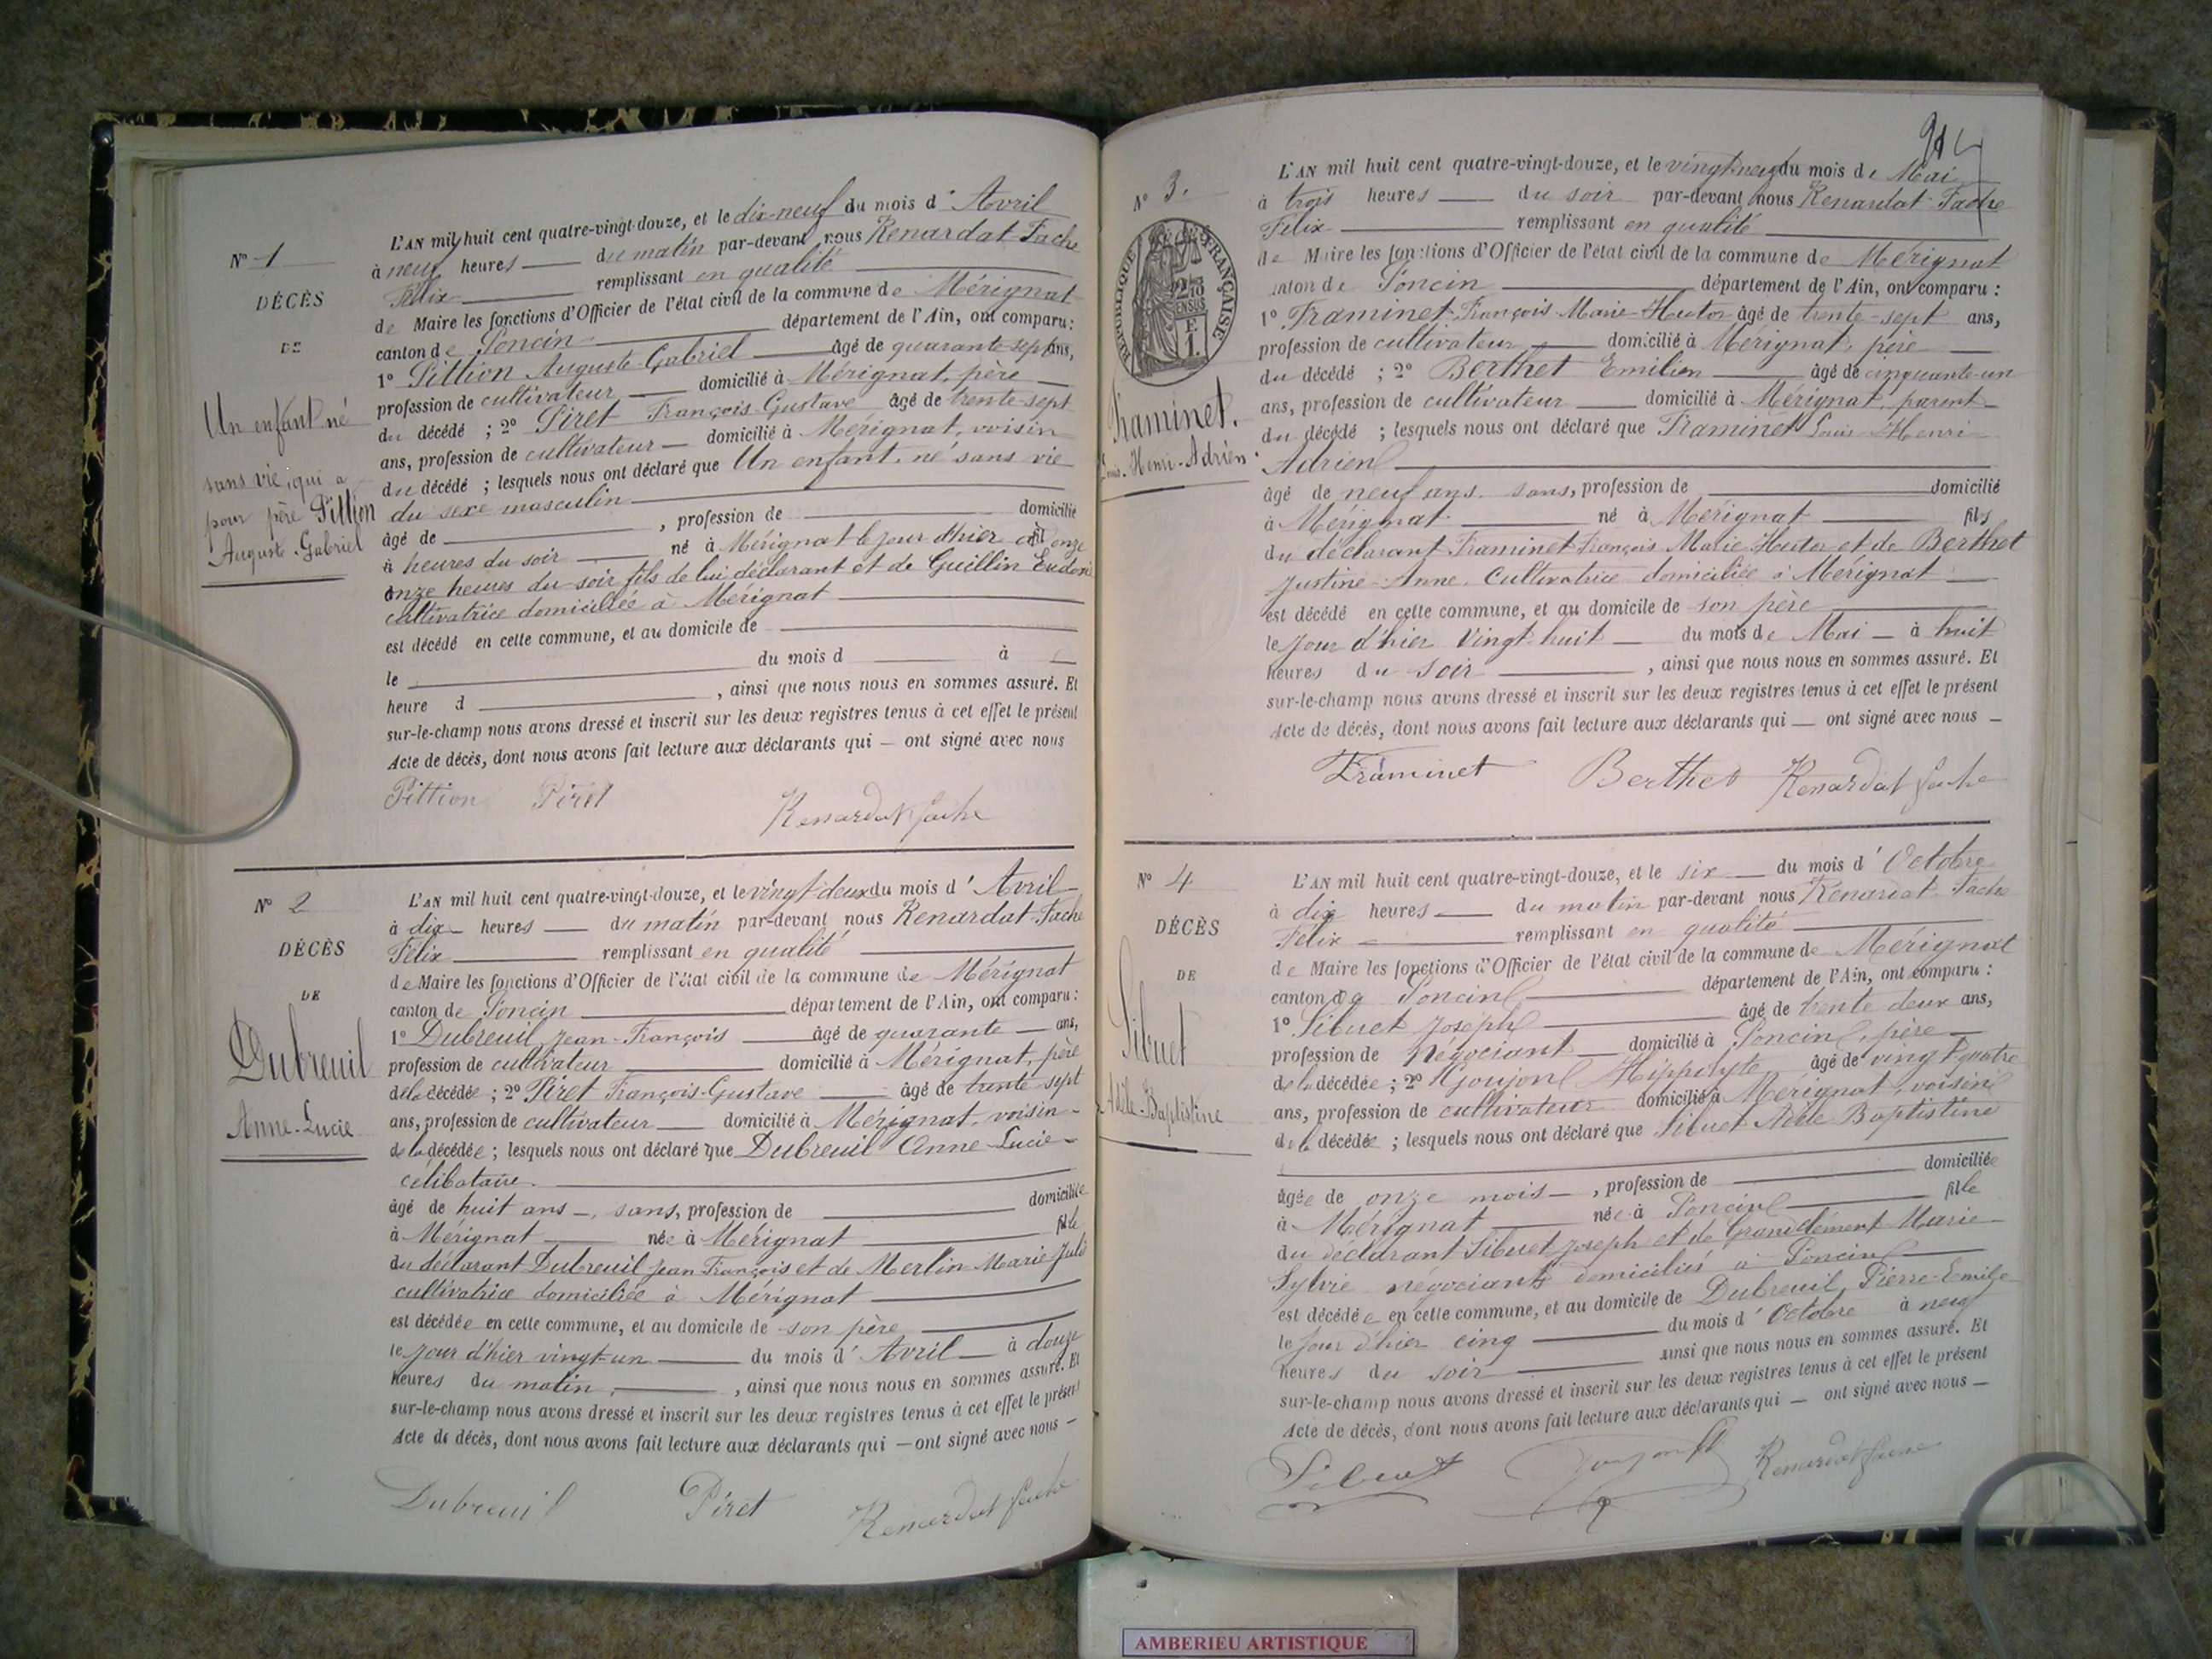 N° 1
DÉCÈS
DE
Un enfant né
sans vie, qui a
pour père Pittion
Auguste-Gabriel
L'AN mil huit cent quatre-vingt-douze, et le dix-neuf du mois d' Avril
à neuf heures du matin par-devant nous Renardat-Fache
Félix remplissant en qualité
de Maire les fonctions d'Officier de l'état civil de la commune de Mérignat
canton de Poncin département de l'Ain, ont comparu :
1° Pittion Auguste-Gabriel âgé de quarante-sept ans,
profession de cultivateur domicilié à Mérignat, père
du décédé ; 2° Piret François-Gustave âgé de trente-sept
ans, profession de cultivateur domicilié à Mérignat, voisin
du décédé ; lesquels nous ont déclaré que Un enfant né sans vie
du sexe masculin
âgé de , profession de domicilié
à heures du soir né à Mérignat le jour d'hier à onze
onze heures du soir fils de lui déclarant et de Guillin
cultivatrice domiciliée à Mérignat
est décédé en cette commune, et au domicile de
le du mois d à
heure d , ainsi que nous nous en sommes assuré. Et
sur-le-champ nous avons dressé et inscrit sur les deux registres tenus à cet effet le présent
Acte de décès, dont nous avons fait lecture aux déclarants qui — ont signé avec nous
Pittion Piret Renardat Fache
N° 2
DÉCÈS
DE
Dubreuil
Anne-Lucie
L'AN mil huit cent quatre-vingt-douze, et le vingt-deux du mois d' Avril
à dix heures du matin par-devant nous Renardat-Fache
Félix remplissant en qualité
de Maire les fonctions d'Officier de l'état civil de la commune de Mérignat
canton de Poncin département de l'Ain, ont comparu :
1° Dubreuil Jean-François âgé de quarante ans,
profession de cultivateur domicilié à Mérignat, père
de la décédée ; 2° Piret François-Gustave âgé de trente-sept
ans, profession de cultivateur domicilié à Mérignat, voisin
de la décédée ; lesquels nous ont déclaré que Dubreuil Anne-Lucie
célibataire.
âgé de huit ans, sans, profession de domiciliée
à Mérignat née à Mérignat fille
du déclarant Dubreuil Jean-François et de Merlin Marie Julie
cultivatrice domiciliée à Mérignat
est décédée en cette commune, et au domicile de son père
le jour d'hier vingt-un du mois d' Avril à douze
heures du matin, , ainsi que nous nous en sommes assuré. Et
sur-le-champ nous avons dressé et inscrit sur les deux registres tenus à cet effet le présent
Acte de décès, dont nous avons fait lecture aux déclarants qui — ont signé avec nous —
Dubreuil Piret Renardat Fache
N° 3.
RÉPUBLIQUE FRANÇAISE
2/10 EN SUS
F
1.
Traminet.
Louis-Henri-Adrien.
L'AN mil huit cent quatre-vingt-douze, et le vingt-neuf du mois de Mai
à trois heures du soir par-devant nous Renardat-Fache
Félix remplissant en qualité
de Maire les fonctions d'Officier de l'état civil de la commune de Mérignat
canton de Poncin département de l'Ain, ont comparu :
1° Traminet François Marie-Hector âgé de trente-sept ans,
profession de cultivateur domicilié à Mérignat, père
du décédé ; 2° Berthet Emilien âgé de cinquante-un
ans, profession de cultivateur domicilié à Mérignat, parent
du décédé ; lesquels nous ont déclaré que Traminet Louis-Henri
Adrien
âgé de neuf ans. sans, profession de domicilié
à Mérignat né à Mérignat fils
du déclarant Traminet François Marie Hector et de Berthet
Justine-Anne. cultivatrice domiciliée à Mérignat
est décédé en cette commune, et au domicile de son père
le jour d'hier vingt-huit du mois de Mai à huit
heures du soir , ainsi que nous nous en sommes assuré. Et
sur-le-champ nous avons dressé et inscrit sur les deux registres tenus à cet effet le présent
Acte de décès, dont nous avons fait lecture aux déclarants qui — ont signé avec nous —
Traminet Berthet Renardat Fache
N° 4
DÉCÈS
DE
Sibuet
Adèle-Baptistine
L'AN mil huit cent quatre-vingt-douze, et le six du mois d' Octobre
à dix heures du matin par-devant nous Renardat-Fache
Félix remplissant en qualité
de Maire les fonctions d'Officier de l'état civil de la commune de Mérignat
canton de Poncin département de l'Ain, ont comparu :
1° Sibuet Joseph âgé de trente deux ans,
profession de Négociant domicilié à Poncin, père
de la décédée ; 2° Goujon Hippolyte âgé de vingt-quatre
ans, profession de cultivateur domicilié à Mérignat, voisin
de la décédée ; lesquels nous ont déclaré que Sibuet Adèle Baptistine
âgée de onze mois , profession de domiciliée
à Mérignat née à Poncin fille
du déclarant Sibuet Joseph et de Grandclément Marie
Sylvie négociants domiciliés à Poncin
est décédée en cette commune, et au domicile de Dubreuil Pierre-Emile
le jour d'hier cinq du mois d' Octobre à neuf
heures du soir ainsi que nous nous en sommes assuré. Et
sur-le-champ nous avons dressé et inscrit sur les deux registres tenus à cet effet le présent
Acte de décès, dont nous avons fait lecture aux déclarants qui — ont signé avec nous —
Sibuet Goujon Renardat Fache
AMBERIEU ARTISTIQUE